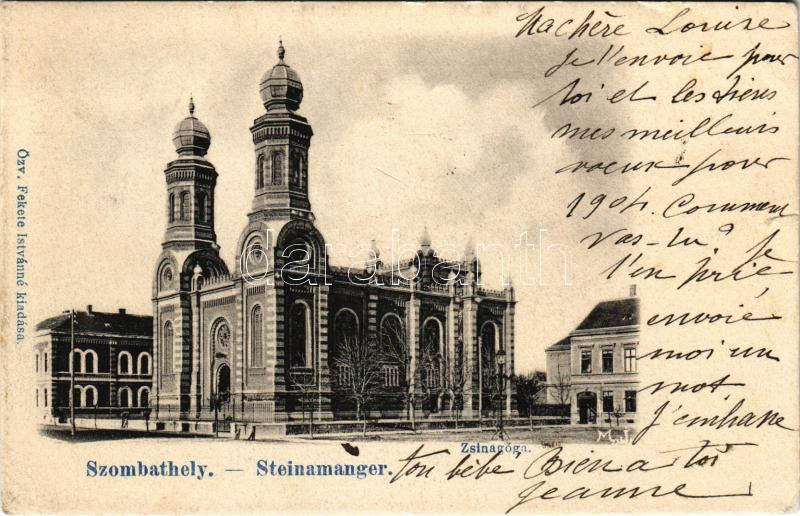 Ma chère Louise
je t'envoie pour
toi et les tiens
mes meilleurs
voeux pour
1904. Comment
vas-tu? Je
t'en prie
envoie
moi un
mot.
J'embrasse
ton bébé Bien à toi
Jeanne
Özv. Fekete Istvánné kiadása.
darabanth.com
Zsinagóga.
Szombathely. — Steinamanger.